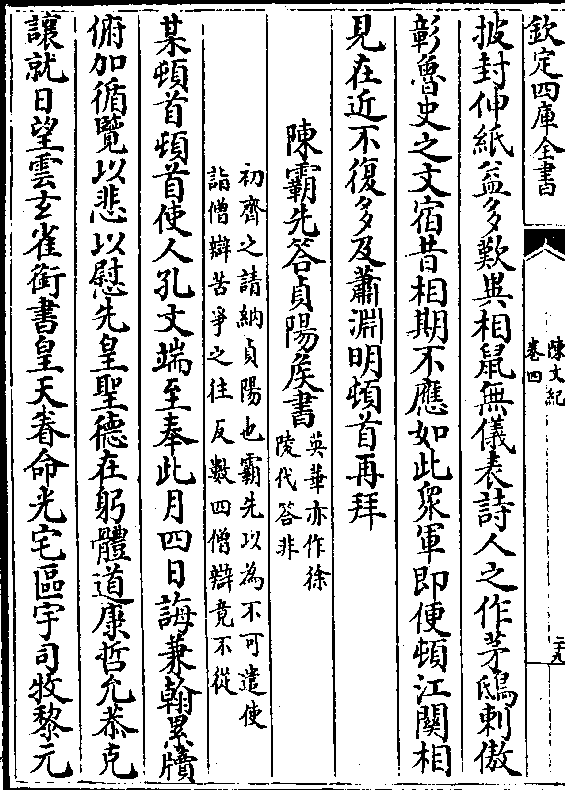 欽定四庫全書
陳文紀
卷四
披封伸紙益多歎與相鼠無儀表詩人之作茅鴟刺傲
彰魯史之文宿昔相期不應如此衆軍即便頓江關相
見在近不復多及蕭淵明頓首再拜
陳霸先答貞陽侯書
英華亦作徐
陵代答非
初齊之請納貞陽也霸先以為不可遣使
詣僧辯苦爭之往反數四僧辯竟不從
某頓首頓首使人孔文端至奉此月四日誨兼翰累牘
俯加循覽以悲以慰先皇聖德在躬體道康哲允恭克
讓就日望雲玄雀銜書皇天眷命光宅區宇司牧黎元